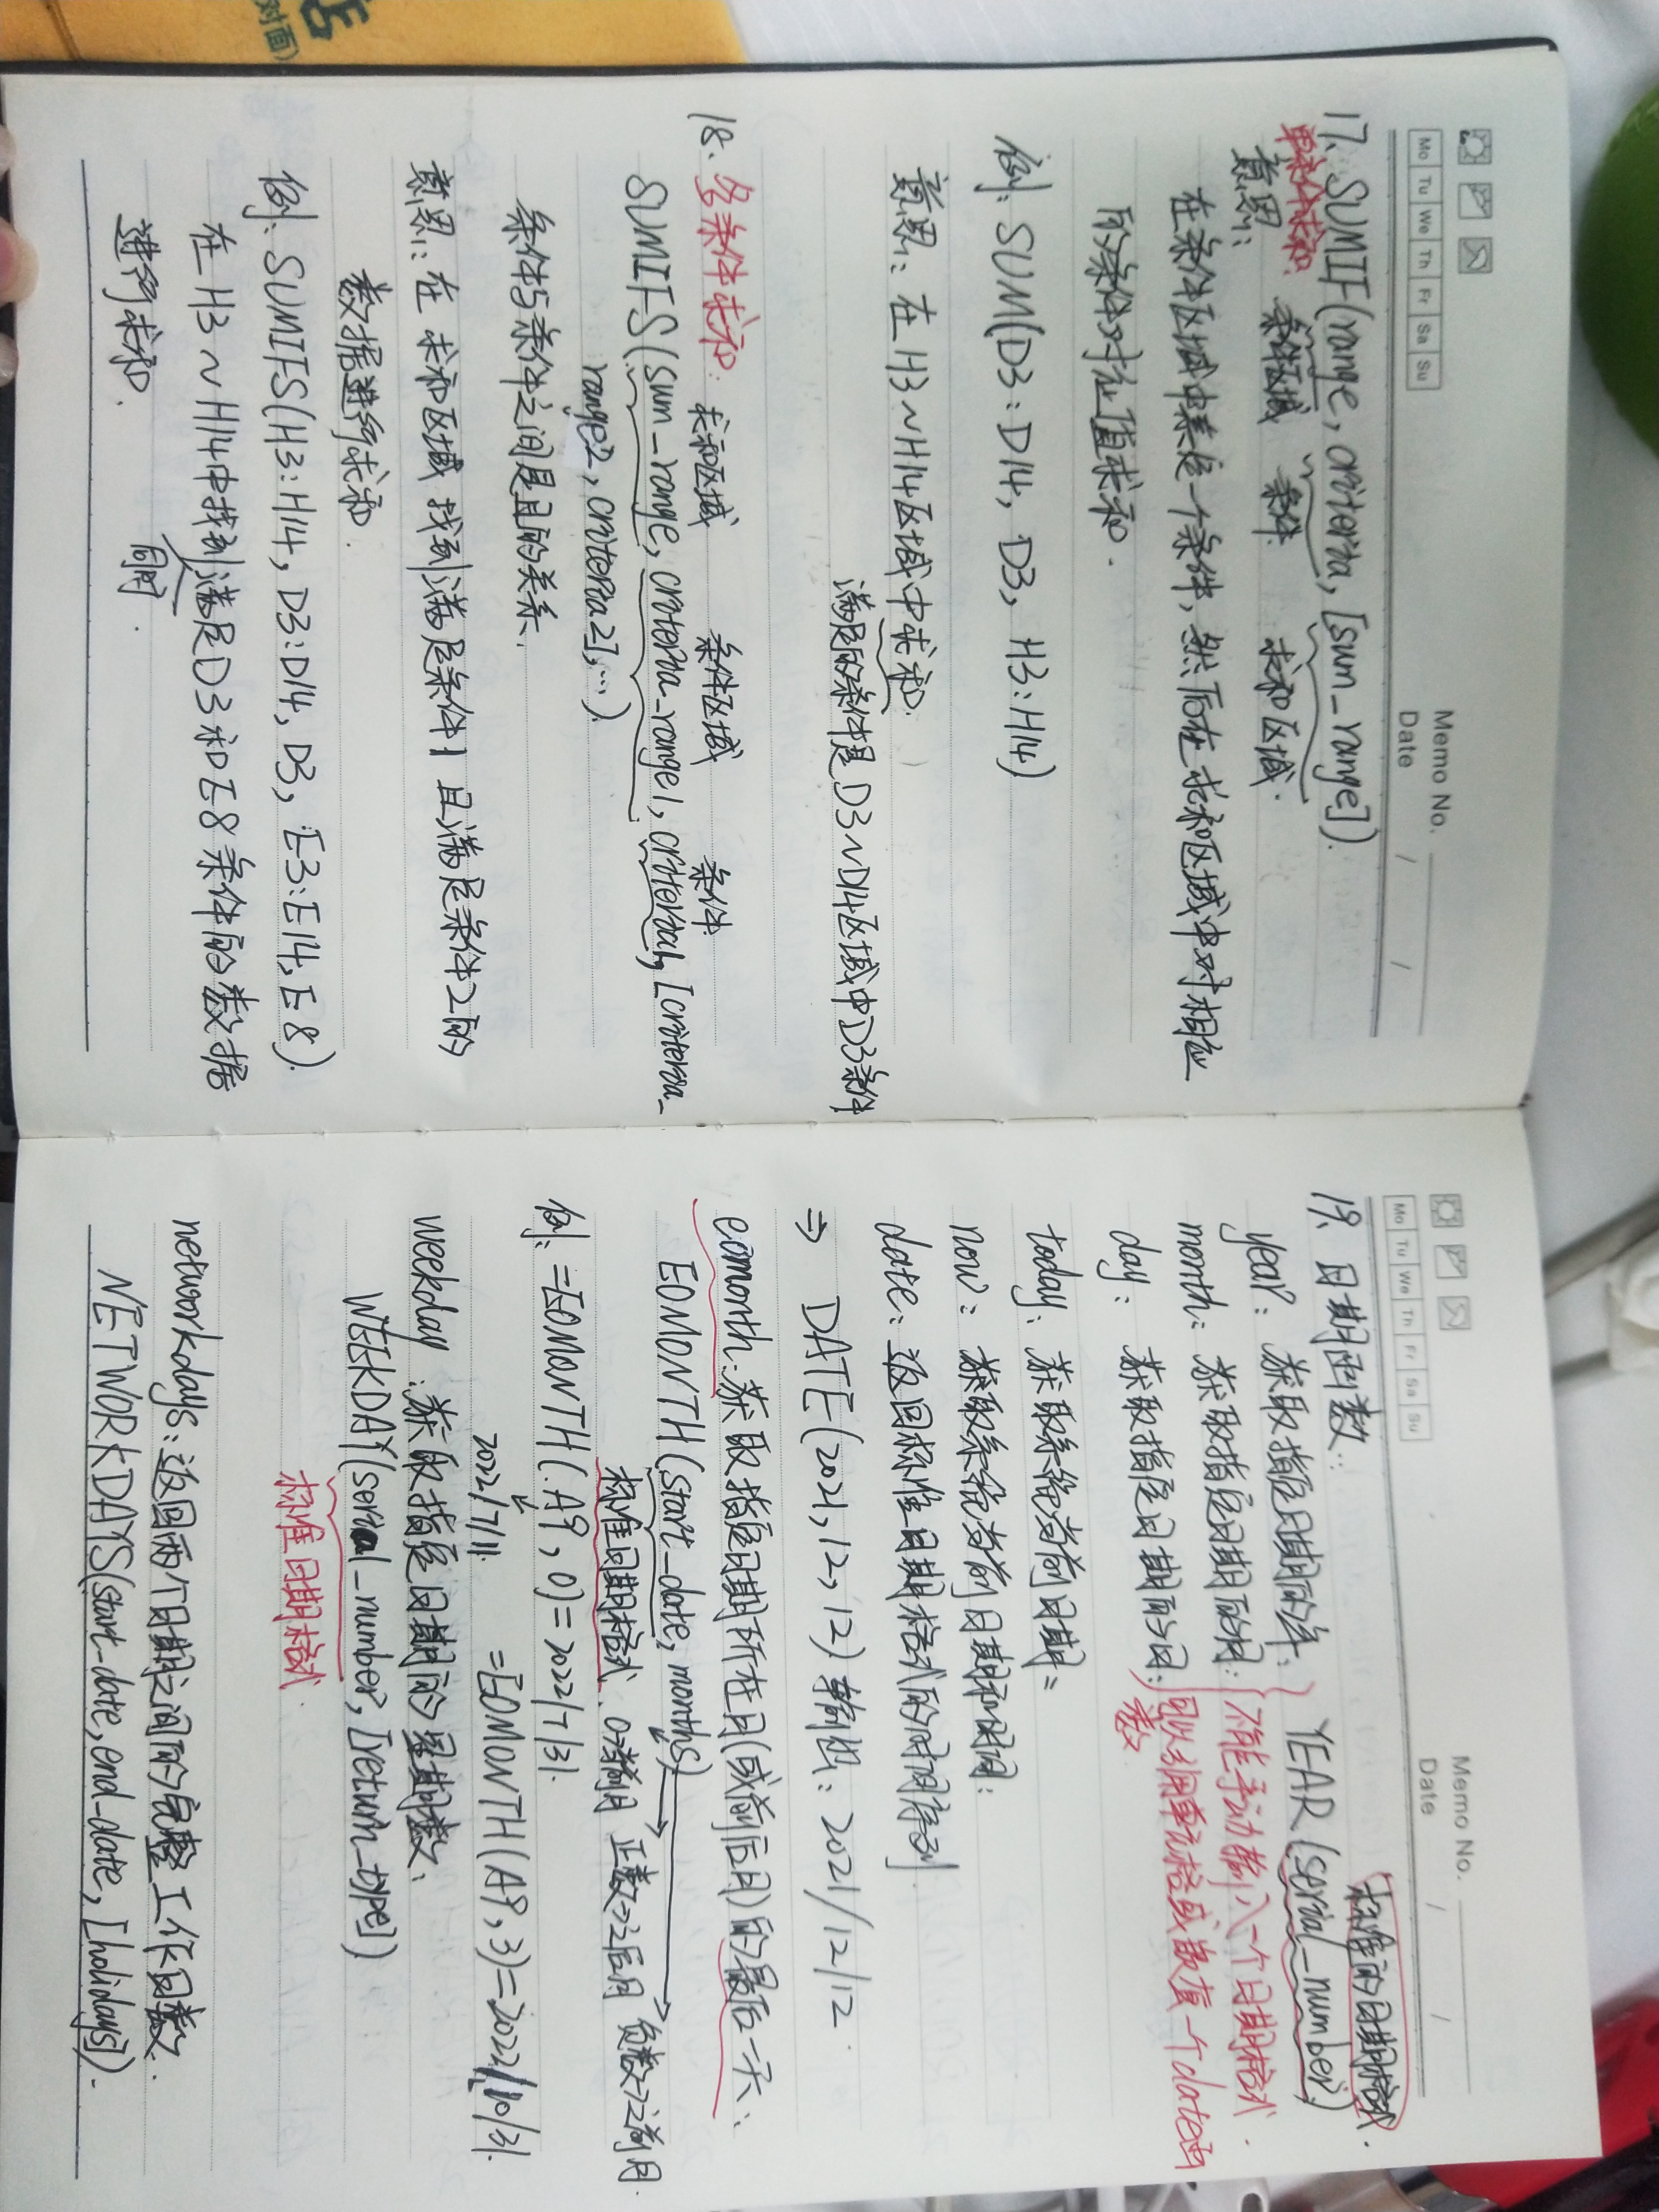 对面)
Mo Tu We Th Fr Sa Su
Memo No.
Date / /
17. SUMIF(range, criteria, [sum_range]).
单条件求和: 条件区域 条件 求和区域.
意思:
在条件区域中某一个条件, 然后在求和区域中对相应
的条件对应值求和.
例: SUM(D3:D14, D3, H3:H14)
意思: 在H3~H14区域中求和.
满足的条件是D3~D14区域中D3条件
18. 多条件求和: 求和区域 条件区域 条件
SUMIFS(sum_range, criteria_range1, criteria1, [criteria_
range2, criteria2], ...).
条件与条件之间是且的关系.
意思: 在求和区域找到满足条件1且满足条件2的
数据进行求和.
例: SUMIFS(H3:H14, D3:D14, D3, E3:E14, E8).
在H3~H14中找到满足D3和E8条件的数据
同时
进行求和.
Mo Tu We Th Fr Sa Su
Memo No.
Date / /
19. 日期函数:
标准的日期格式.
year: 获取指定日期的年; YEAR(serial_number)
month: 获取指定日期的月; 不能手动输入一个日期格式.
day: 获取指定日期的日; 可以引用单元格或嵌值一个date函
数
today: 获取系统当前日期=
now: 获取系统当前日期和时间:
date: 返回标准日期格式的时间序列
⇒ DATE(2021,12,12) 输出: 2021/12/12.
eomonth: 获取指定日期所在月(或前后月)的最后一天:
EOMONTH(start_date, months)
标准日期格式. 0⇒当前月 正数⇒之后月 负数⇒之前月.
例: =EOMONTH(A9,0)=2022/7/31.
2022/7/11. =EOMONTH(A9,3)=2022/10/31.
weekday: 获取指定日期的星期数.
WEEKDAY(serial_number, [return_type])
标准日期格式.
networkdays: 返回两个日期之间的完整工作日数.
NETWORKDAYS(start_date, end_date, [holidays]).